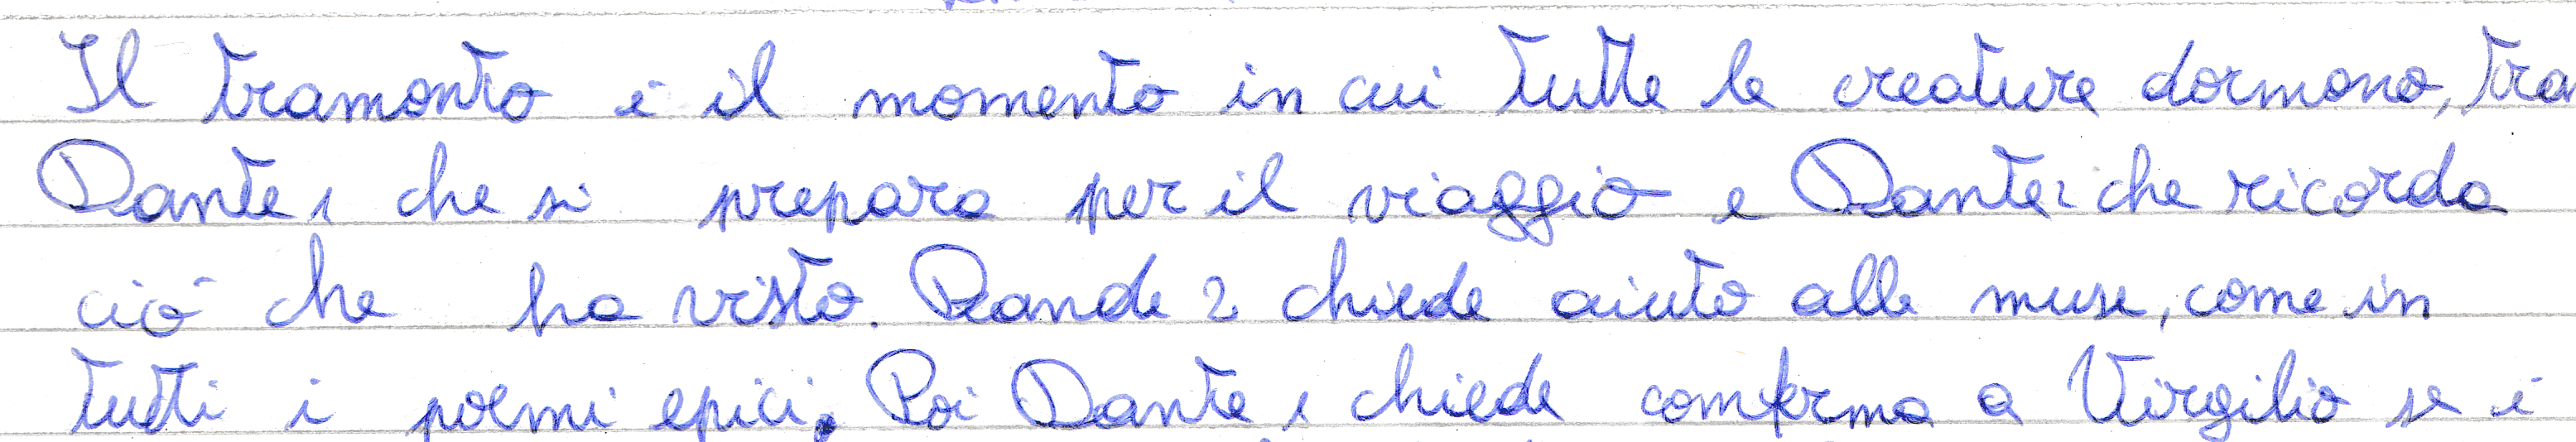 Il tramonto è il momento in cui tutte le creature dormono, tra
Dante 1 che si prepara per il viaggio e Dante 2 che ricorda
ciò che ha visto. Dande 2 chiede aiuto alle muse, come in
tutti i poemi epici. Poi Dante 1 chiede comferma a Virgilio se è